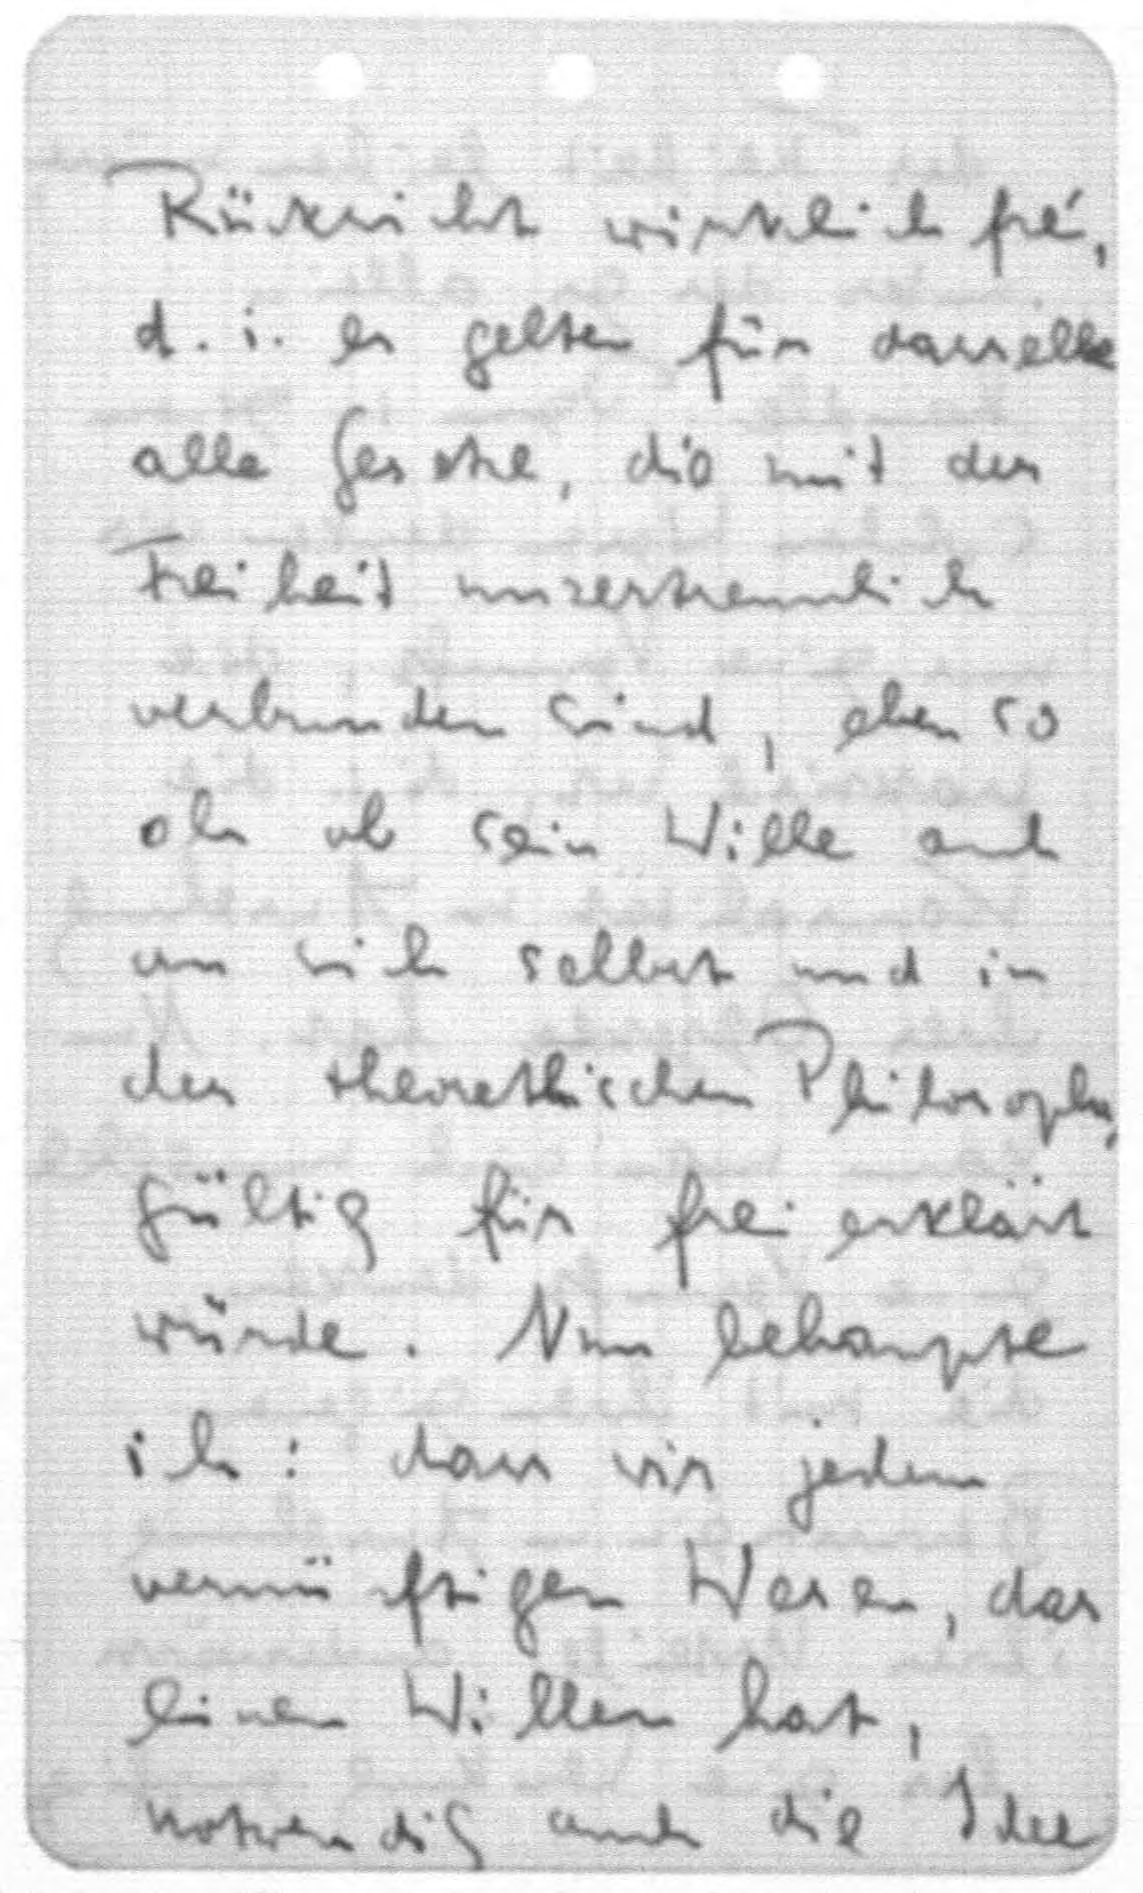 Rücksicht wirklich frei,
d. i. es gelten für dasselbe
alle Gesetze, die mit der
Freiheit unzertrennlich
verbunden sind, eben so
als ob sein Wille auch
an sich selbst und in
der theorethischen Philosophie,
gültig für frei erklärt
würde. Nun behaupte
ich: dass wir jedem
vernünftigen Wesen, das
einen Willen hat,
notwendig auch die Idee